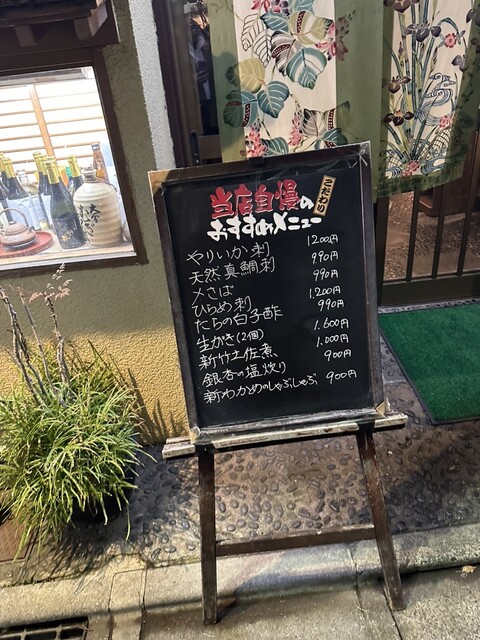 当店自慢の
こだわり
おすすめメニュー
やりいか刺 1200円
天然真鯛刺 990円
〆さば 990円
ひらめ刺 1,200円
たらの白子酢 990円
生がき(2個) 1,600円
新竹土佐煮 1,000円
銀杏の塩炒り 900円
新わかめのしゃぶしゃぶ 900円